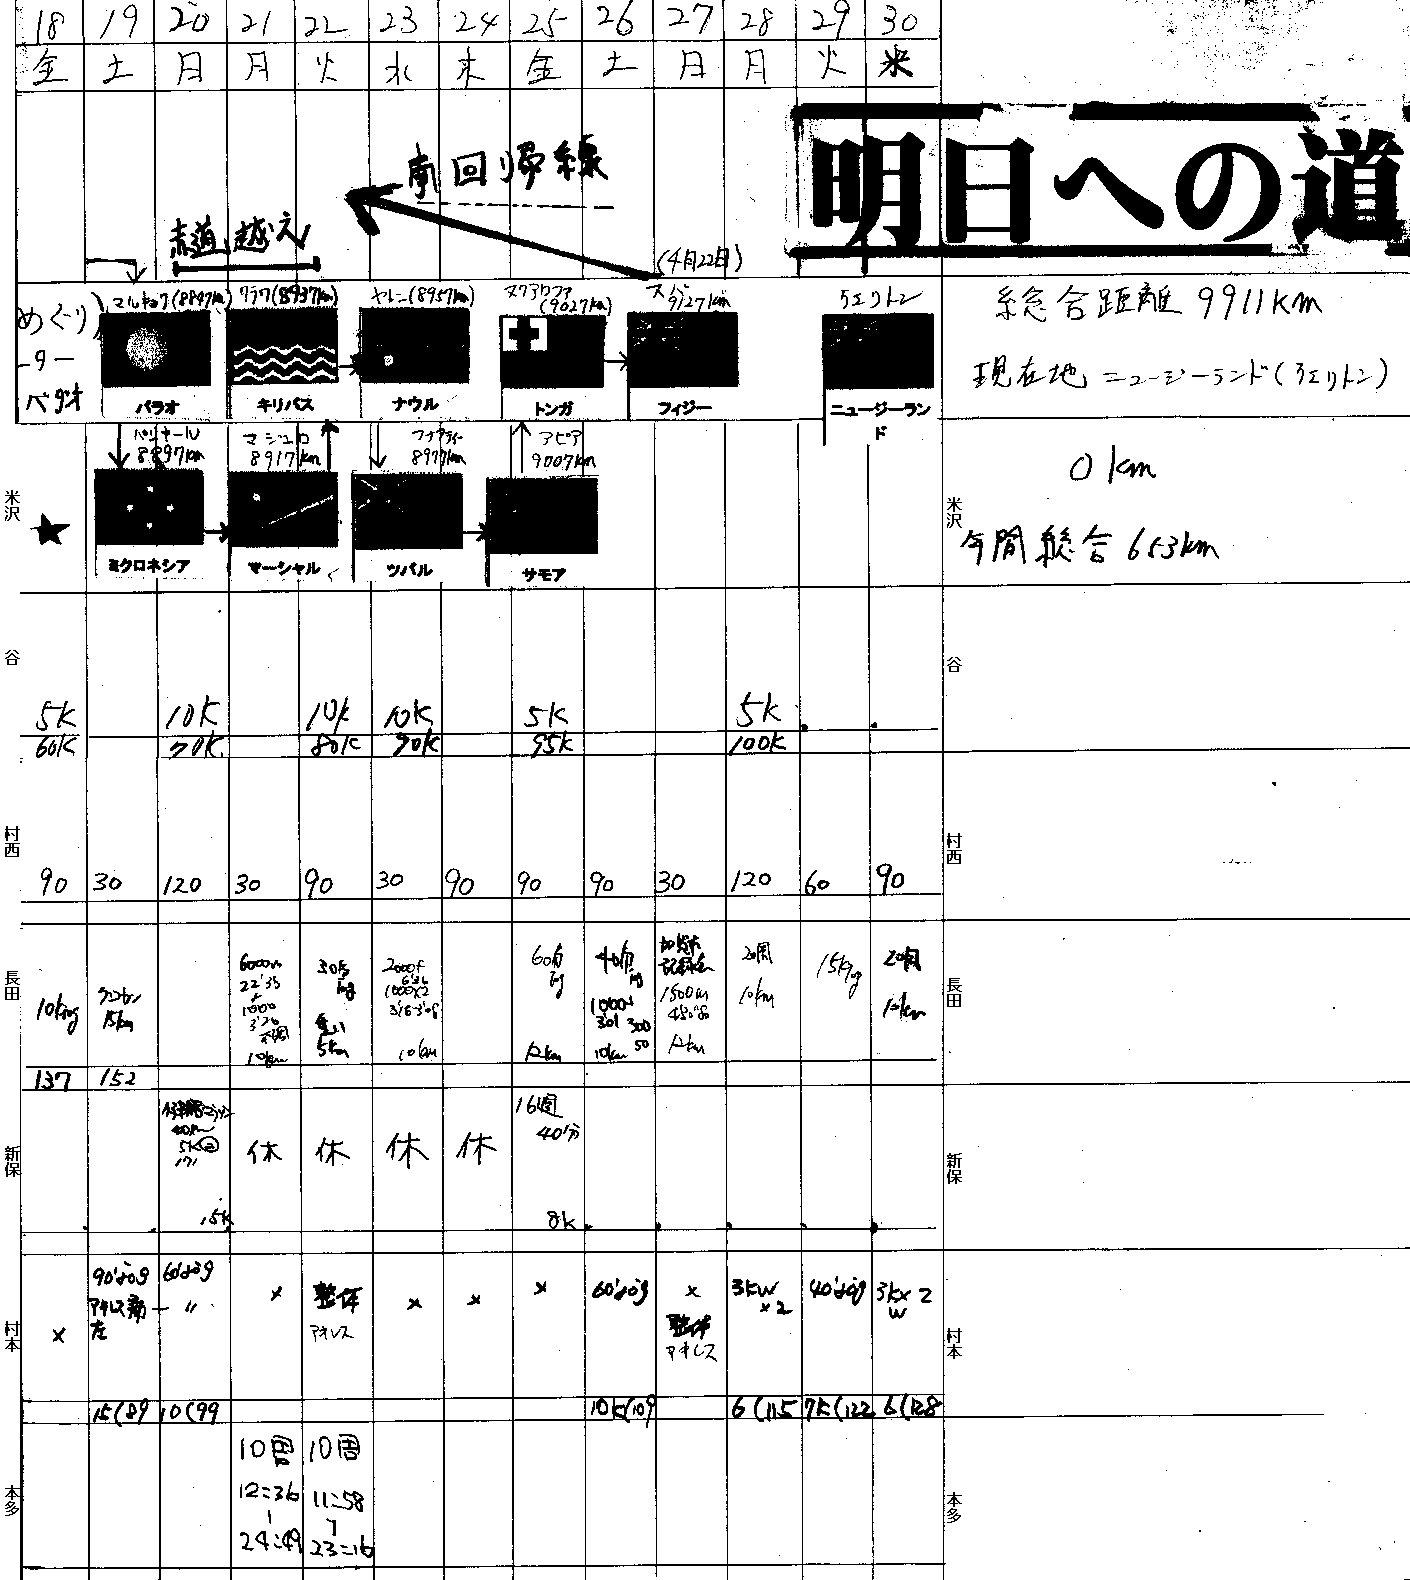 18 19 20 21 22 23 24 25 26 27 28 29 30
金 土 日 月 火 水 木 金 土 日 月 火 水
明日への道
南回帰線
赤道越え
(4月22日)
めぐり)
マルキョク(8897km) タラワ(8937km) ヤレン(8957km) ヌクアロファ(9027km) スバ 9127km ウェリントン
総合距離 9911km
ーター
現在地 ニュージーランド(ウェリントン)
パラオ キリバス ナウル トンガ フィジー ニュージーランド
マジュロ 8917km フナフティ 8977km アピア 9007km
0km
米沢 ★ 米沢
年間総合 653km
ミクロネシア マーシャル ツバル サモア
谷 谷
5K 10K 10K 10K 5K 5K
60K 70K 80K 90K 95K 100K
村西 村西
90 30 120 30 90 30 90 90 90 30 120 60 90
長田 長田
6000m 30分 2000+ 60分 40分 記録会 20周 15kjog 20周
22'35 jog 1000×2 jog jog 1500m 10km 10km
10kmjog 15km 1000 5km 1000+ 12km
10km 10km 12km 10km
137 152
新保 新保
40km 休 休 休 休 16周
5K 40分
15K 8K
村本 村本
90'jog 60'jog × 整体 × × × 60'jog × 3kW×2 40'jog 3k×2 W
アキレス痛 〃 アキレス 整体
左 アキレス
×
15(89 10(99 10K(109 6(115 7K(122 6(128
本多 本多
10周 10周
12:36 11:58
24:49 23:16